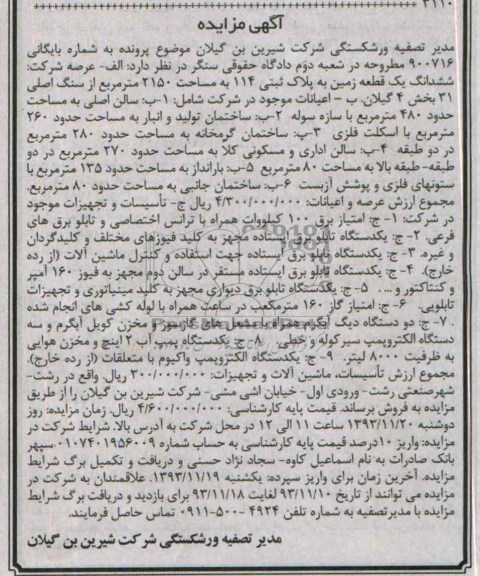 ۳۱۱۰
آگهی مزایده
مدیر تصفیه ورشکستگی شرکت شیرین بن گیلان موضوع پرونده به شماره بایگانی
۹۰۰۷۱۶ مطروحه در شعبه دوم دادگاه حقوقی سنگر در نظر دارد: الف- عرصه شرکت:
ششدانگ یک قطعه زمین به پلاک ثبتی ۱۱۴ به مساحت ۲۱۵۰ مترمربع از سنگ اصلی
۳۱ بخش ۴ گیلان. ب – اعیانات موجود در شرکت شامل: ۱-ب: سالن اصلی به مساحت
حدود ۴۸۰ مترمربع با سازه سوله ۲-ب: ساختمان تولید و انبار به مساحت حدود ۲۶۰
مترمربع با اسکلت فلزی ۳-پ: ساختمان گرمخانه به مساحت حدود ۲۸۰ مترمربع
در دو طبقه ۴-ب: سالن اداری و مسکونی کلا به مساحت حدود ۲۷۰ مترمربع در دو
طبقه- طبقه بالا به مساحت ۸۰ مترمربع ۵-ب: بارانداز به مساحت حدود ۱۳۵ مترمربع با
ستونهای فلزی و پوشش آزبست ۶-ب: ساختمان جانبی به مساحت حدود ۸۰ مترمربع.
مجموع ارزش عرصه و اعیانات: ۴/۳۰۰/۰۰۰/۰۰۰ ریال ج- تأسیسات و تجهیزات موجود
در شرکت: ۱- ج: امتیاز برق ۱۰۰ کیلووات همراه با ترانس اختصاصی و تابلو برق های
فرعی. ۲- ج: یکدستگاه تابلو برق ایستاده مجهز به کلید فیوزهای مختلف و کلیدگردان
و غیره. ۳- ج: یکدستگاه تابلو برق ایستاده جهت استفاده و کنترل ماشین آلات (از رده
خارج). ۴- ج: یکدستگاه تابلو برق ایستاده مستقر در سالن دوم مجهز به فیوز ۱۶۰ آمپر
و کنتاکتور و ... ۵- ج: یکدستگاه تابلو برق دیواری مجهز به کلید مینیاتوری و تجهیزات
تابلویی. ۶- ج: امتیاز گاز ۱۶۰ مترمکعب در ساعت همراه با لوله کشی های انجام شده
. ۷- ج: دو دستگاه دیگ آبگرم همراه با مشعل های گازسوز و مخزن کویل آبگرم و سه
دستگاه الکتروپمپ سیرکوله و خطی. ۸- ج: یکدستگاه پمپ آب ۲ اینچ و مخزن هوایی
به ظرفیت ۸۰۰۰ لیتر. ۹- ج: یکدستگاه الکتروپمپ واکیوم با متعلقات (از رده خارج).
مجموع ارزش تأسیسات، ماشین آلات و تجهیزات: ۳۰۰/۰۰۰/۰۰۰ ریال. واقع در رشت-
شهرصنعتی رشت- ورودی اول- خیابان اشی مشی- شرکت شیرین بن گیلان را از طریق
مزایده به فروش برساند. قیمت پایه کارشناسی: ۴/۶۰۰/۰۰۰/۰۰۰ ریال. زمان مزایده: روز
دوشنبه ۱۳۹۳/۱۱/۲۰ ساعت ۱۱ الی ۱۲ در محل شرکت به آدرس بالا. شرایط شرکت در
مزایده: واریز ۱۰درصد قیمت پایه کارشناسی به حساب شماره ۰۱۰۷۴۰۱۹۵۶۰۰۹ سپهر
بانک صادرات به نام اسماعیل کاوه- سجاد نژاد حسنی و دریافت و تکمیل برگ شرایط
مزایده. آخرین زمان برای واریز سپرده: یکشنبه ۱۳۹۳/۱۱/۱۹. علاقمندان به شرکت در
مزایده می توانند از تاریخ ۹۳/۱۱/۱۰ لغایت ۹۳/۱۱/۱۸ برای بازدید و دریافت برگ شرایط
مزایده با مدیرتصفیه به شماره تلفن ۴۹۲۴ -۵۰۰-۰۹۱۱ تماس حاصل فرمایند.
مدیر تصفیه ورشکستگی شرکت شیرین بن گیلان